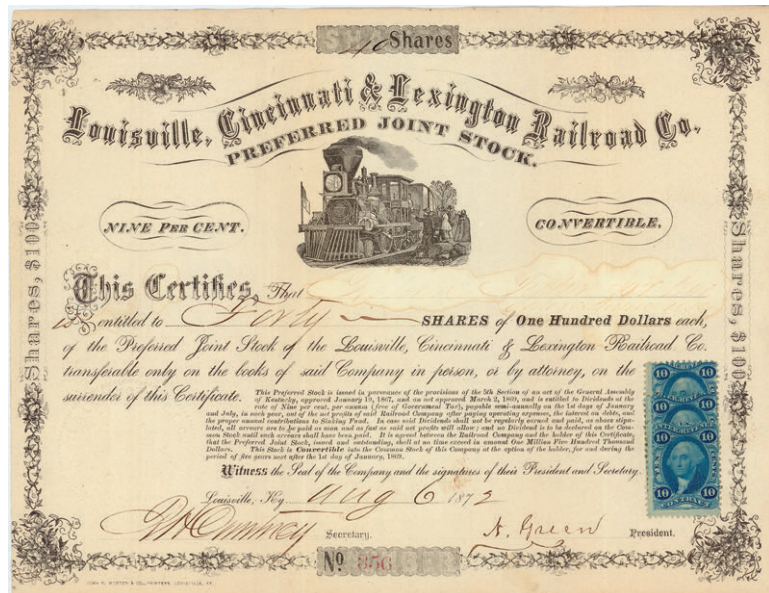 40 Shares
Louisville, Cincinnati & Lexington Railroad Co.
PREFERRED JOINT STOCK.
NINE PER CENT.
CONVERTIBLE.
Shares, $100
Shares, $100
This Certifies, That
is entitled to Forty SHARES of One Hundred Dollars each,
of the Preferred Joint Stock of the Louisville, Cincinnati & Lexington Railroad Co.
transferable only on the books of said Company in person, or by attorney, on the
surrender of this Certificate.
This Preferred Stock is issued in pursuance of the provisions of the 5th Section of an act of the General Assembly
of Kentucky, approved January 19, 1867, and an act approved March 2, 1869, and is entitled to Dividends at the
rate of Nine per cent. per annum (free of Government Tax), payable semi-annually on the 1st days of January
and July, in each year, out of the net profits of said Railroad Company after paying operating expenses, the interest on debts, and
the proper annual contributions to Sinking Fund. In case said Dividends shall not be regularly earned and paid, as above stipu-
lated, all arrears are to be paid as soon and as fast as said net profits will allow; and no Dividend is to be declared on the Com-
mon Stock until such arrears shall have been paid. It is agreed between the Railroad Company and the holder of this Certificate,
that the Preferred Joint Stock, issued and outstanding, shall at no time exceed in amount One Million Five Hundred Thousand
Dollars. This Stock is Convertible into the Common Stock of this Company at the option of the holder, for and during the
period of five years next after the 1st day of January, 1869.
Witness the Seal of the Company and the signatures of their President and Secretary.
Louisville, Ky. Aug 6 1872
Secretary.
A. Green President.
No 356
10 10
INTER REVENUE
10 10
CONTRACT